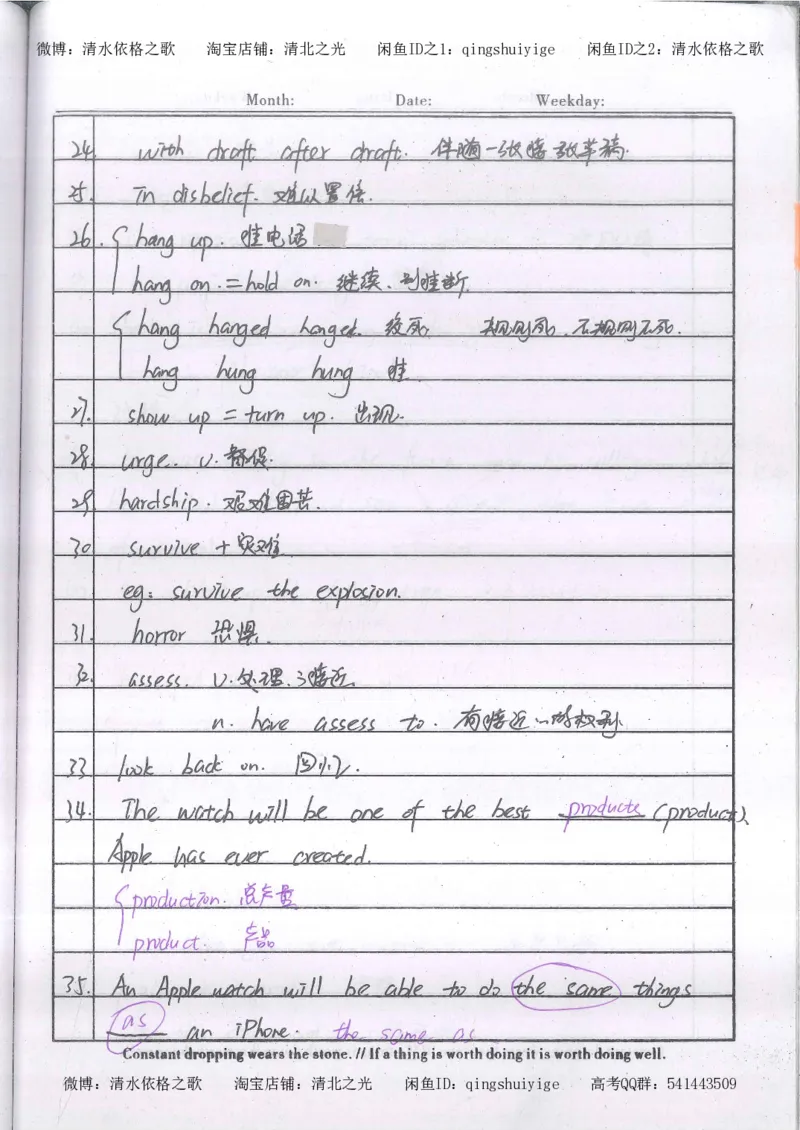 微博：清水依格之歌 淘宝店铺：清北之光 闲鱼ID之1：qingshuiyige 闲鱼ID之2：清水依格之歌
Month: Date: Weekday:
24. with draft after draft. 伴随一张接一张草稿.
25. In disbelief. 难以置信.
26. hang up. 挂电话
hang on. = hold on. 继续、别挂断.
hang hanged hanged. 绞死. 规则死, 不规则不死.
hang hung hung 挂.
27. show up = turn up. 出现.
28. urge. v. 督促.
29. hardship. 艰难困苦.
30 survive + 灾难
eg: survive the explosion.
31. horror 恐惧.
32. assess. v. 处理.接近.
n. have assess to. 有接近…的权利.
33 look back on. 回忆.
34. The watch will be one of the best products (product),
Apple has ever created.
production. 总产量
product. 产品
35. An Apple watch will be able to do the same things
as an iPhone. the same as
Constant dropping wears the stone. // If a thing is worth doing it is worth doing well.
微博：清水依格之歌 淘宝店铺：清北之光 闲鱼ID：qingshuiyige 高考QQ群：541443509